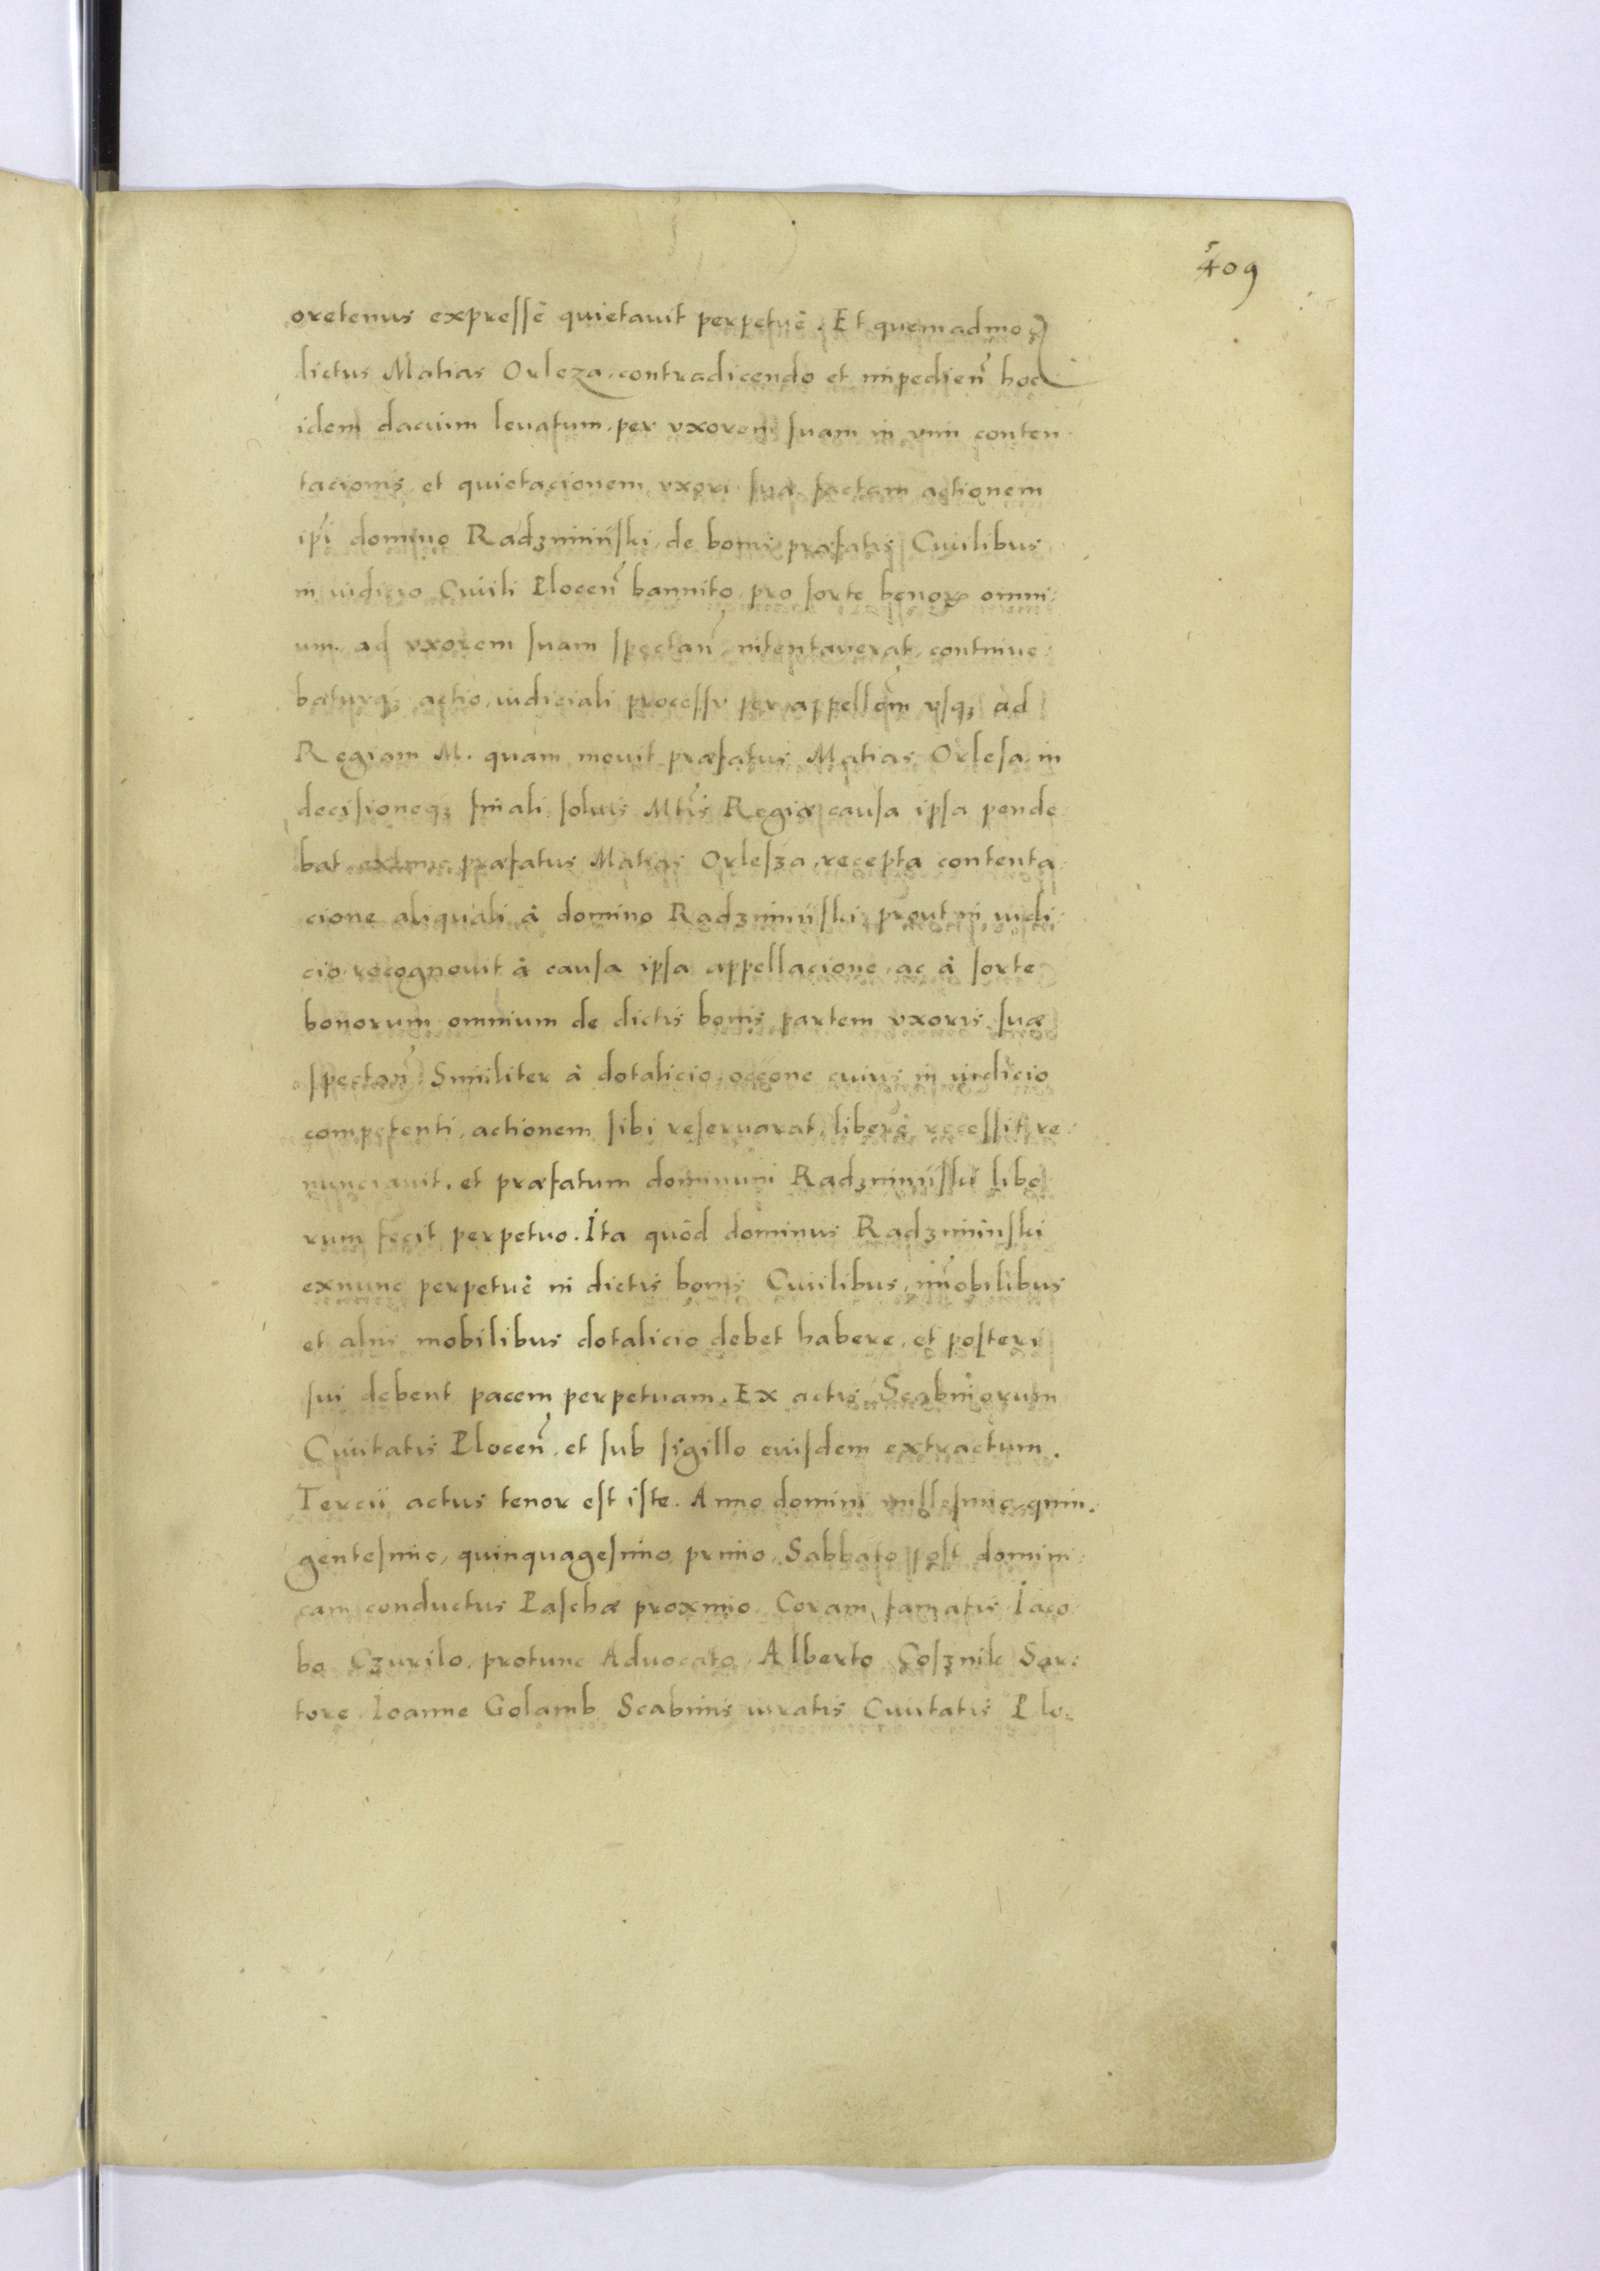 409
oretenus expressè quietavit perpetuè. Et quemadmo
dictus Matias Orleza, contradicendo et impedien hoc
idem dacium levatum, per vxorem suam in vim conten
tacionis et quietacionem vxori suæ factam actionem
ipsi domino Radzmiński, de bonis præfatis Civilibus
in iudicio Civili Plocen bannito pro sorte bonorum omni
um ad vxorem suam spectan, intentaverat, continue
baturq; actio, iudiciali processu per appellem vsq; ad
Regiam M. quam movit præfatus Matias Orlesa, in
decisioneq; finali solius Mtis Regiæ causa ipsa pende
bat præfatus Matias Orlesza, recepta contenta
cione aliquali à domino Radzmiński, prout in iudi
cio recognovit à causa ipsa appellacione, ac à sorte
bonorum omnium de dictis bonis partem vxoris suæ
spectan Similiter à dotalicio, occone cuius in iudicio
competenti, actionem sibi reservarat, liberè recessit re
nunciavit, et præfatum dominum Radzmiński libe
rum fecit perpetuo. Ita quòd dominus Radzmiński
exnunc perpetuè in dictis bonis Civilibus, immobilibus
et aliis mobilibus dotalicio debet habere, et posteri
sui debent pacem perpetuam. Ex actis Scabinorum
Civitatis Plocen, et sub sigillo eiusdem extractum.
Tercii actus tenor est iste. Anno domini millesimo quin.
gentesimo, quinquagesimo primo, Sabbato post domini
cam conductus Paschæ proximo Coram famatis Iaco
bo Czurilo, protunc Advocato, Alberto Cosznik Sar:
tore Ioanne Golamb Scabinis iuratis Civitatis Plo: